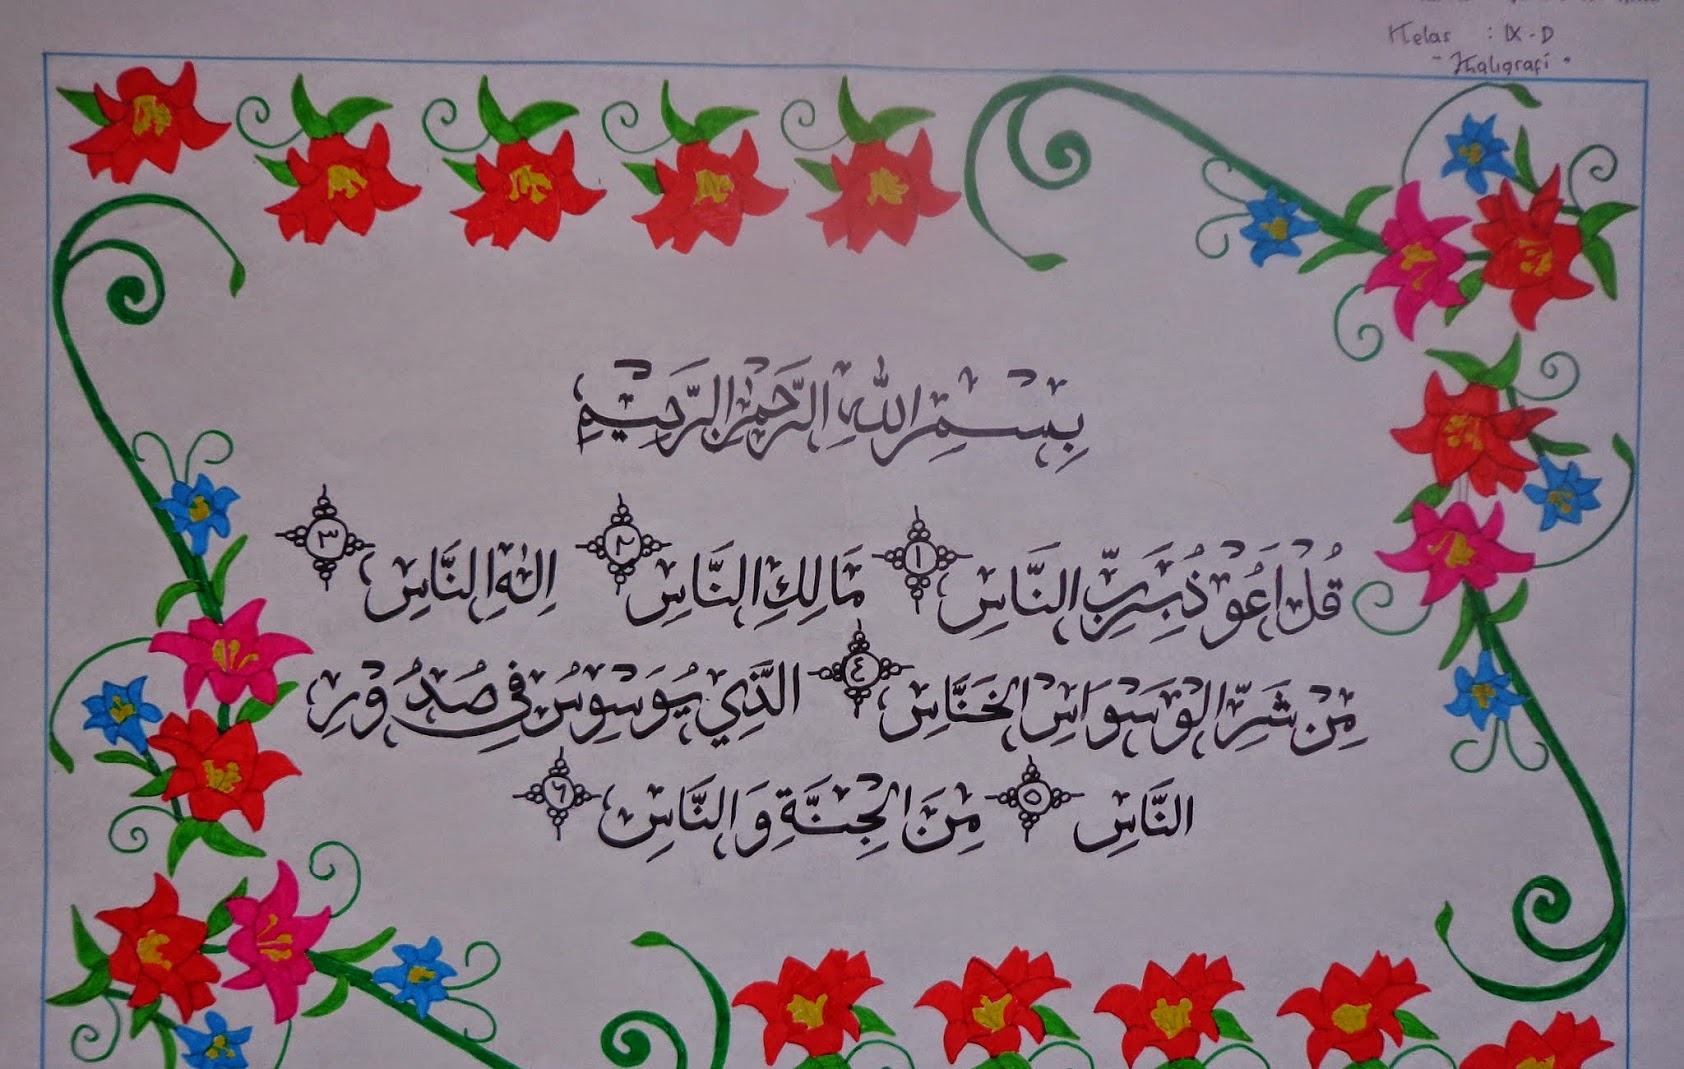 Kelas : IX-D
- Kaligrafi -
بِسْمِ اللهِ الرَّحْمٰنِ الرَّحِيْمِ
قُلْ اَعُوْذُ بِرَبِّ النَّاسِ ١ مَالِكِ النَّاسِ ٢ اِلٰهِ النَّاسِ ٣
مِنْ شَرِّ الْوَسْوَاسِ الْخَنَّاسِ ٤ الَّذِيْ يُوَسْوِسُ فِيْ صُدُوْرِ
النَّاسِ ٥ مِنَ الْجِنَّةِ وَالنَّاسِ ٦